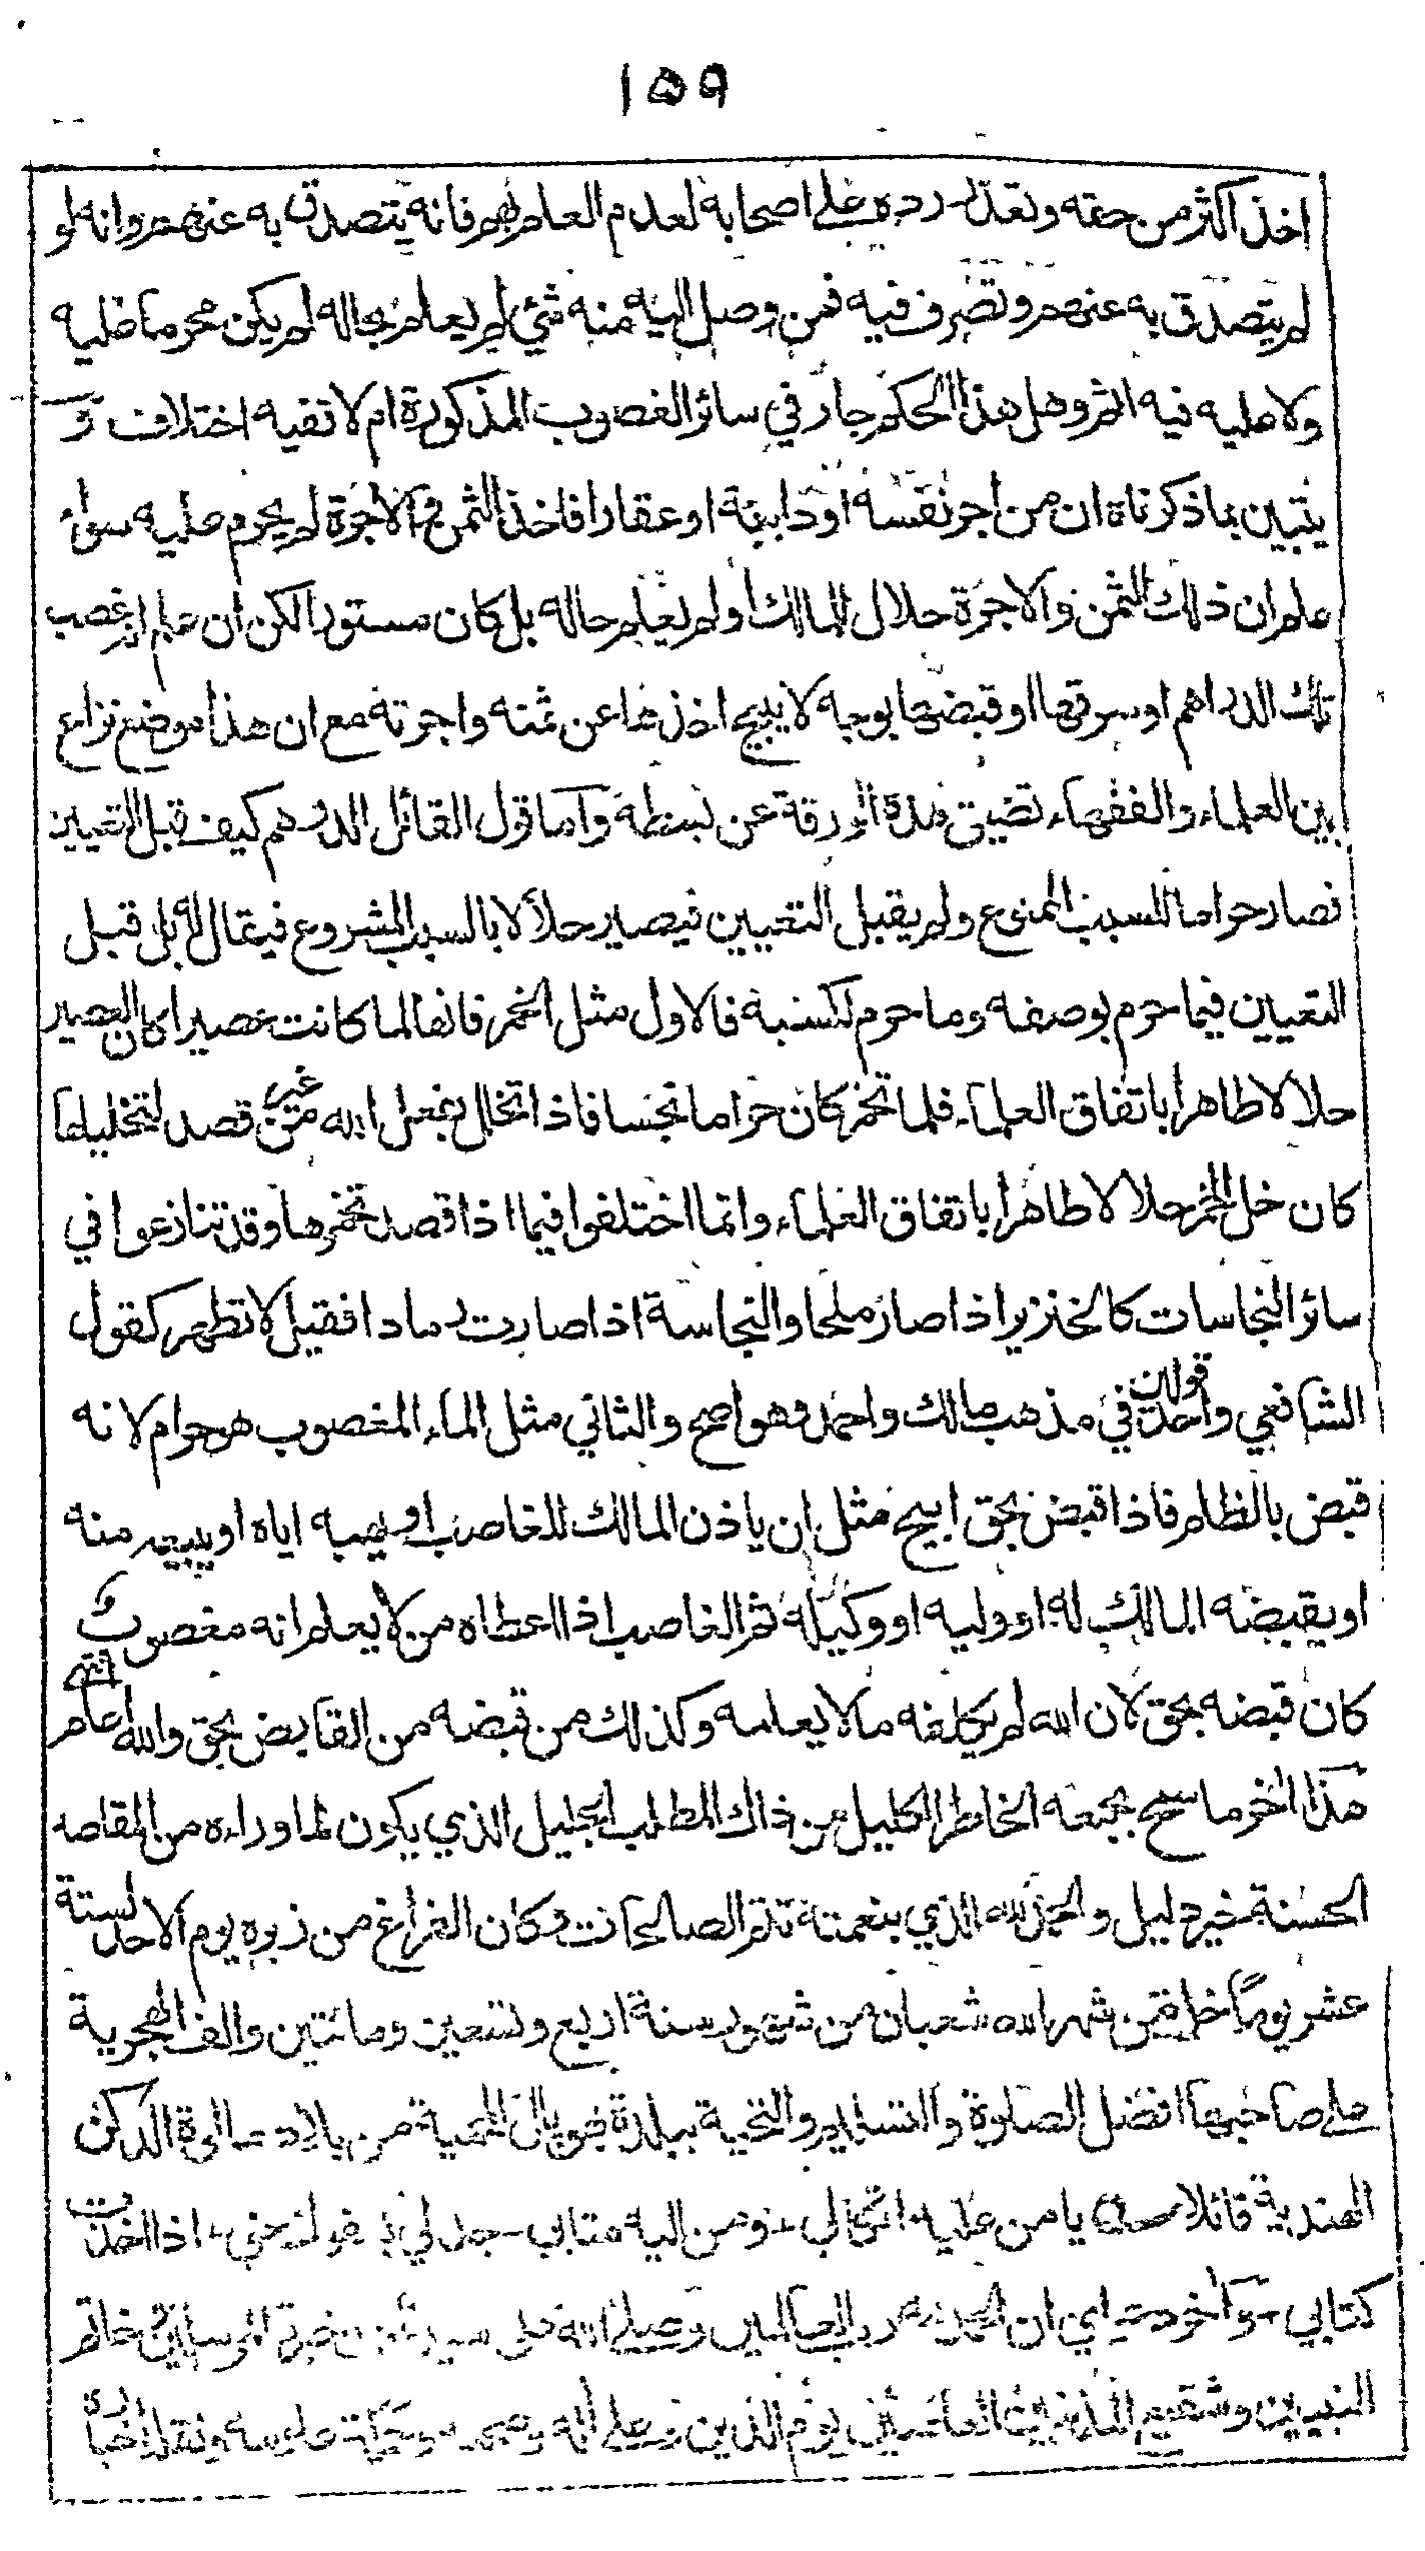 ١٥٩
اخذ اكثر من حقه وتعذر رده على اصحابه لعدم العلم بهم فانه يتصدق به عنهم وانه لو
لم يتصدق به عنهم وتصرف فيه فمن وصل اليه منه شئ لم يعلم بحاله لم يكن محرما عليه
ولا عليه فيه اثم وهل هذا الحكم جار في سائر الغصوب المذكورة ام لا ففيه اختلاف و
يتبين بما ذكرناه ان من اجر نفسه او دابته او عقارا فاخذ الثمن والاجرة لم يحرم عليه سواء
علم ان ذلك الثمن والاجرة حلال المالك او لم يعلم حاله بل كان مستورا لكن ان علم انه غصب
تلك الدراهم او سرقها او قبضها بوجه لا يبيح اخذها عن ثمنه واجرته مع ان هذا موضع نزاع
بين العلماء والفقهاء تضيق هذه الورقة عن بسطه واما قول القائل الدرهم كيف قبل التعيين
فصار حراما للسبب الممنوع ولم يقبل التعيين فيصير حلالا بالسبب المشروع فيقال له بل قبل
التعيين فيما حرم بوصفه وما حرم لكسبه فالاول مثل الخمر فانها لما كانت عصيرا كان العصير
حلالا طاهرا باتفاق العلماء فلما تخمر كان حراما نجسا فاذا تخلل بفعل الله من غير قصد لتخليلها
كان خل الخمر حلالا طاهرا باتفاق العلماء وانما اختلفوا فيما اذا قصد تخمرها وقد تنازعوا في
سائر النجاسات كالخنزير اذا صار ملحا والنجاسة اذا صارت رمادا فقيل لا تطهر كقول
الشافعي واحد قولين في مذهب مالك واحمد وهو اصح والثاني مثل الماء المغصوب هو حرام لانه
قبض بالظلم فاذا قبض بحق ابيح مثل ان ياذن المالك للغاصب او يهبه اياه او يبيعه منه
او يقبضه المالك له او وليه او وكيله ثم الغاصب اذا اعطاه من لا يعلم انه مغصوب
كان قبضه بحق لان الله لم يكلفه ما لا يعلمه وكذلك من قبضه من القابض بحق والله اعلم انتهى
هذا اخر ما سمح بجمعه الخاطر الكليل من ذاك المطلب الجليل الذي يكون لما وراءه من المقاصد
الحسنة خير دليل والحمد لله الذي بنعمته تتم الصالحات وكان الفراغ من زبره يوم الاحد لستة
عشر يوما خلت من شهر الله شعبان من شهور سنة اربع وتسعين ومائتين والف الهجرية
على صاحبها افضل الصلوة والتسليم والتحية ببلدة بهوپال المحمية من بلاد مالوة الدكن
الهندية قائلا يا من عليه اتكالي ومن اليه متابي جد لي بعفوك عني اذا اخذت
كتابي واخر دعواي ان الحمد لله رب العالمين وصلى الله على خاتم
النبيين وشفيع المذنبين يوم الدين وعلى اله وصحبه ونقلة اخباره